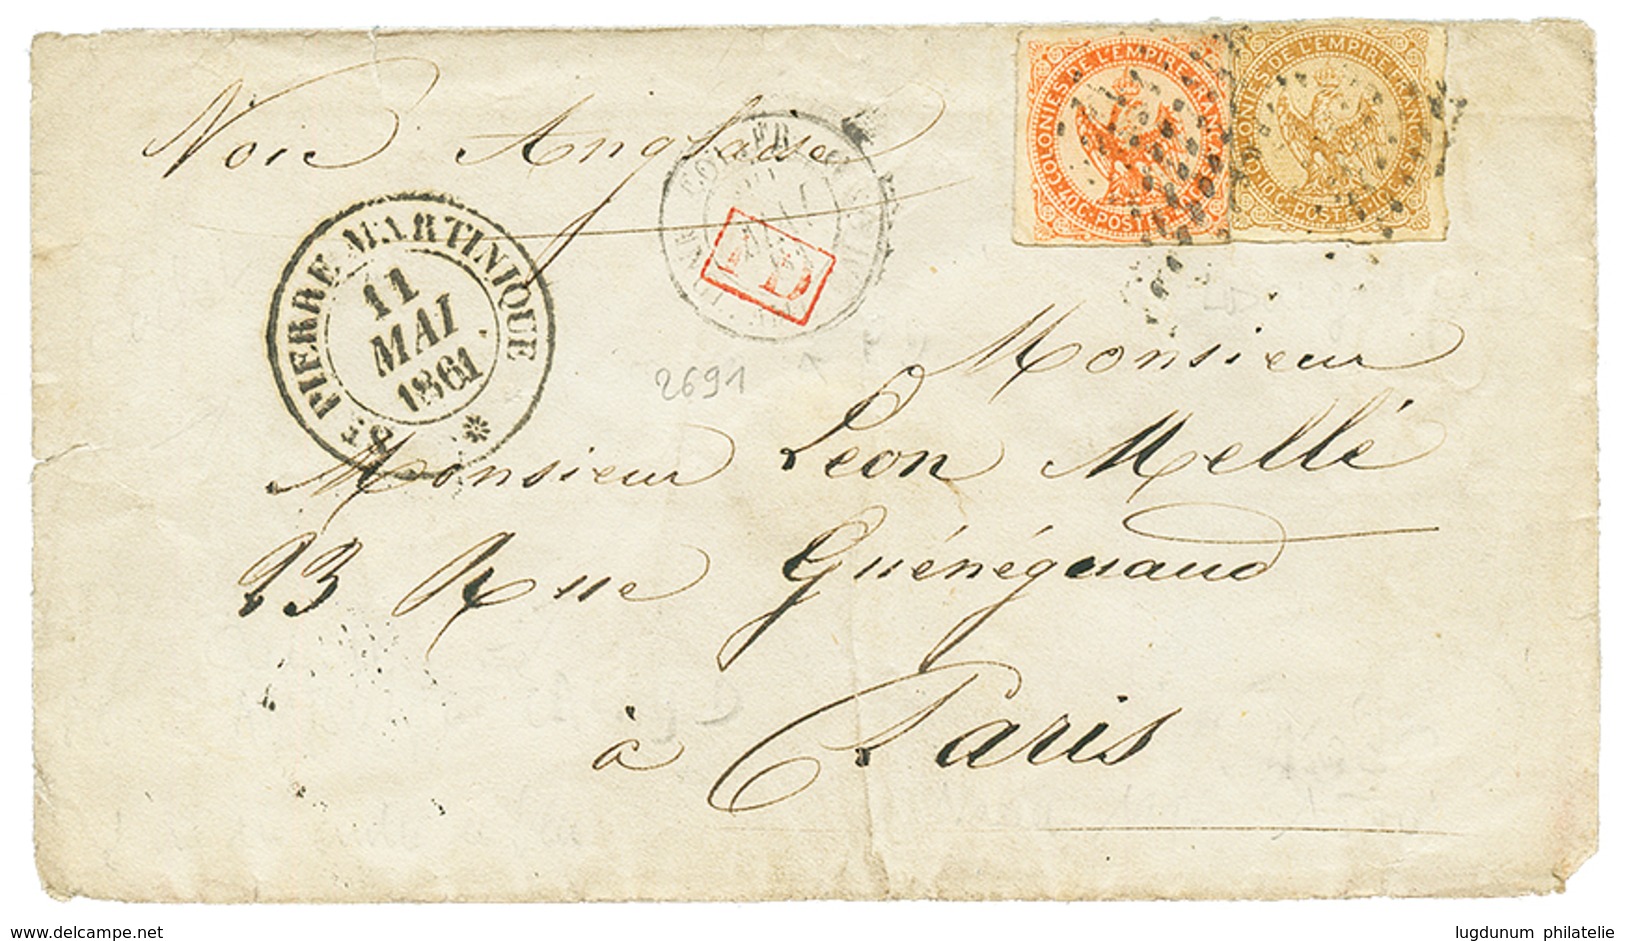 COLONIES DE L'EMPIRE FRANÇAISE
40C. POSTES 40C.
COLONIES DE L'EMPIRE FRANÇAISE
10C. POSTES 10C.
Voie Anglaise
ST. PIERRE MARTINIQUE
11
MAI
1861
PD
2691
Monsieur
Monsieur Léon Mellé
23 Rue Guénéguaud
à Paris
www.delcampe.net
lugdunum philatelie